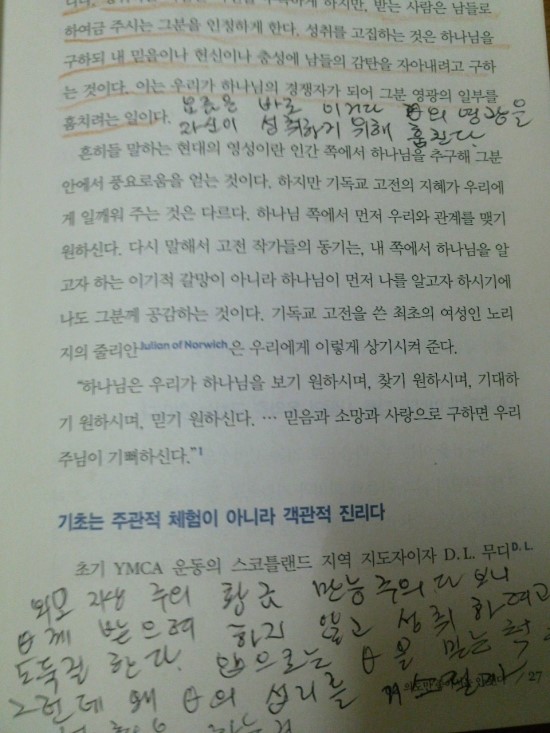 받는 사람은 남들로
하여금 주시는 그분을 인정하게 한다. 성취를 고집하는 것은 하나님을
구하되 내 믿음이나 헌신이나 충성에 남들의 감탄을 자아내려고 구하
는 것이다. 이는 우리가 하나님의 경쟁자가 되어 그분 영광의 일부를
바로 이거다 의 영광을
훔치려는 일이다. 자신이 성취하기 위해 훔친다.
흔히들 말하는 현대의 영성이란 인간 쪽에서 하나님을 추구해 그분
안에서 풍요로움을 얻는 것이다. 하지만 기독교 고전의 지혜가 우리에
게 일깨워 주는 것은 다르다. 하나님 쪽에서 먼저 우리와 관계를 맺기
원하신다. 다시 말해서 고전 작가들의 동기는, 내 쪽에서 하나님을 알
고자 하는 이기적 갈망이 아니라 하나님이 먼저 나를 알고자 하시기에
나도 그분께 공감하는 것이다. 기독교 고전을 쓴 최초의 여성인 노리
지의 줄리안Julian of Norwich은 우리에게 이렇게 상기시켜 준다.
“하나님은 우리가 하나님을 보기 원하시며, 찾기 원하시며, 기대하
기 원하시며, 믿기 원하신다. … 믿음과 소망과 사랑으로 구하면 우리
주님이 기뻐하신다.”1
기초는 주관적 체험이 아니라 객관적 진리다
초기 YMCA 운동의 스코틀랜드 지역 지도자이자 D. L. 무디D. L.
주의 황금 만능주의다 보니
께 받으려 하지 않고 성취 하려고
도둑질 한다. 앞으로는 을 믿는 척
그런데 왜 의 섭리를
27